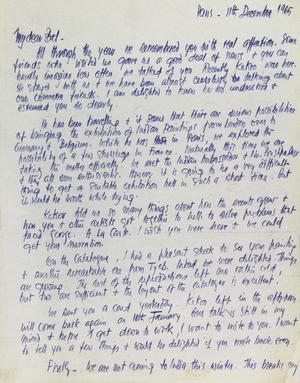 Paris - 11th December 1965
My dear Bal -
All through the year we remembered you with real affection. Some
friends who visited us gave us a good deal of news, & you can
hardly imagine how often we talked of you. Recently Kekoo was here.
He stayed with us & we have been almost constantly talking about
our common friends. I am delighted to know he has understood &
esteemed you so dearly.
He has been travelling & it seems that there are serious possibilities
of bringing the exhibition of Indian Paintings from London over to
Germany & Belgium. While he was in Paris, we explored the
possibility of a few showings in France. Naturally this time we are
taking the matter officially. We met the Indian Ambassador &
& they are both enthusiastic. However, it is going to be very difficult
thing to get a suitable exhibition hall in such a short time. But
it would be worth while trying.
Kekoo told us so many things about how the events grew &
how you & other artists got together to help to solve problems that
faced some. À la carte. I wish you were here & we could
get your narration.
On the Catalogue, I had a pleasant shock to see your painting,
& another remarkable one from Tyeb. Indeed we were delighted. Things
are growing. The rest of the reproductions left me rather cold -
but two are sufficient & the layout of the catalogue is excellent.
We sent you a card yesterday. Kekoo left in the afternoon,
will come back again on 10th January. Our talk is still in my
mind & before I get down to work, I want to write to you. I want
to tell you a few things & would be delighted if you wrote back soon.
Firstly - We are not coming to India this winter. This breaks my